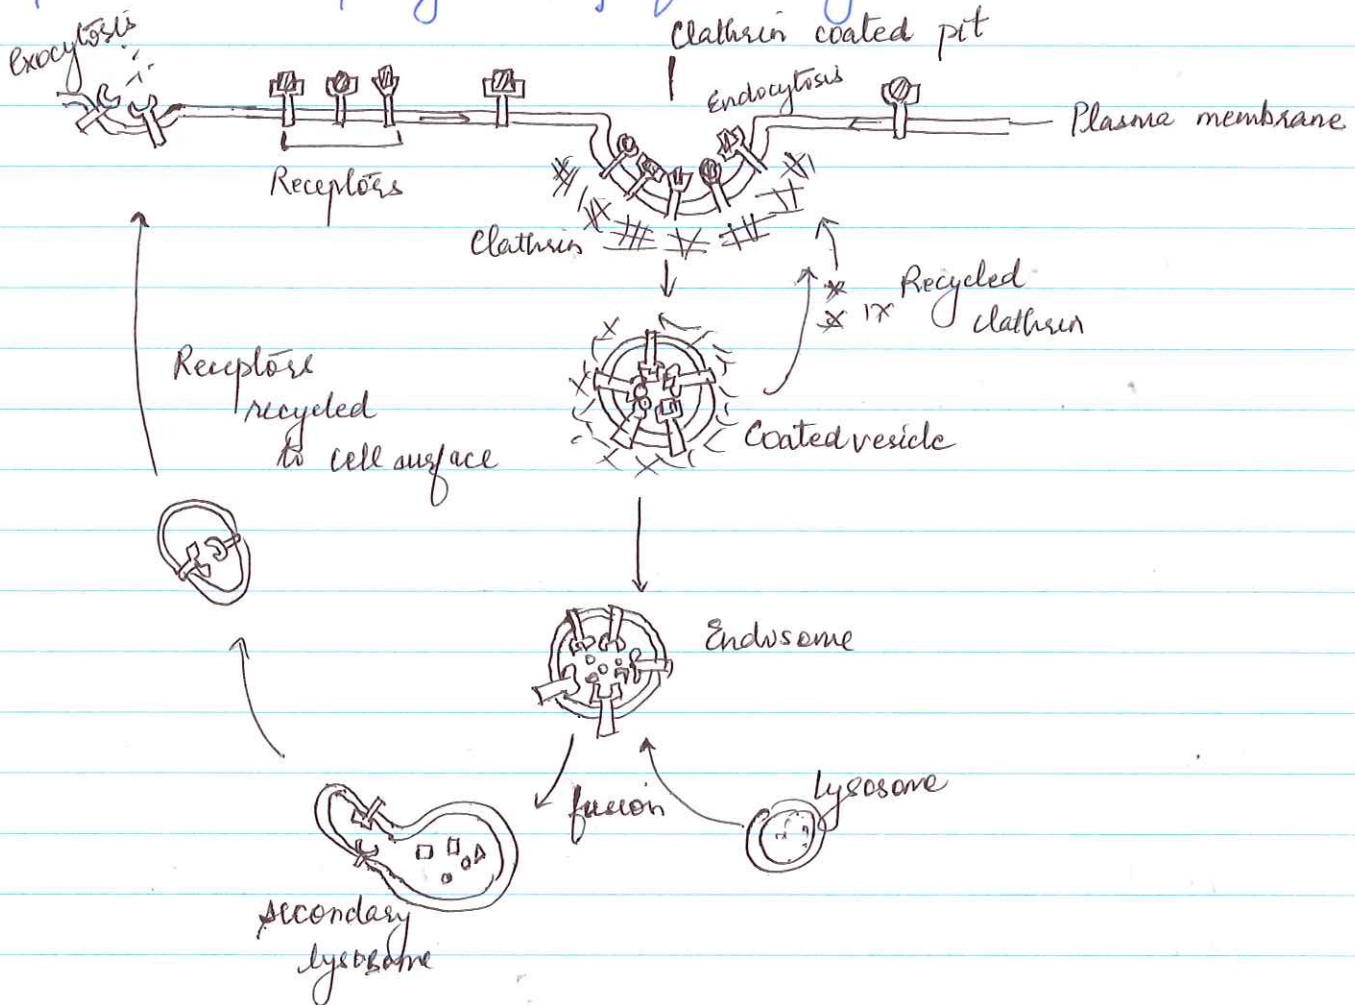 Exocytosis
Clathrin coated pit
Endocytosis
Plasma membrane
Receptors
Clathrin
Recycled
clathrin
Receptors
recycled
to cell surface
Coated vesicle
Endosome
fusion
Lysosome
Secondary
lysosome